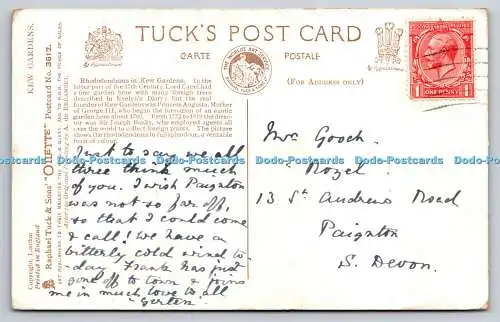 KEW GARDENS.
Raphael Tuck & Sons' "OILETTE" Postcard No. 3612.
ART PUBLISHERS TO THEIR MAJESTIES THE KING AND QUEEN AND TO H.R.H. THE PRINCE OF WALES.
Copyright. London
Printed in England
TUCK'S POST CARD
CARTE
POSTALE
(FOR ADDRESS ONLY)
Rhododendrons in Kew Gardens. In the
latter part of the 17th Century, Lord Capel had
a fine garden here with many foreign trees
described in Evelyn's Diary; but the real
founder of Kew Gardens was Princess Augusta, Mother
of George III, who began the formation of an exotic
garden here about 1760. From 1772 to 1819 the director
was Sir Joseph Banks, who employed agents all
over the world to collect foreign plants. The picture
shows the rhododendrons in full splendour, a veritable
feast of colour.
Just to say we all
three think much
of you. I wish Paignton
was not so far off,
so that I could come
& call! We have a
bitterly cold wind to-
day Frank has just
gone off to town & joins
me in much love to all
Mrs Gooch.
Rozel
13 St Andrews Road
Paignton
S. Devon.
POSTAGE
ONE PENNY
Dodo-Postcards Dodo-Postcards Dodo-Postcards Dodo-Postcards Dodo-Postcards